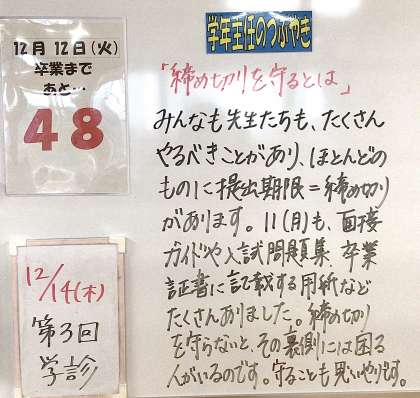 12月 12日(火)
卒業まで
あと…
48
学年主任のつぶやき
「締め切りを守るとは」
みんなも先生たちも、たくさん
やるべきことがあり、ほとんどの
ものに提出期限=締め切り
があります。11(月)も、面接
ガイドや入試問題集、卒業
証書に記載する用紙など
たくさんありました。締め切り
を守らないと、その裏側には困る
人がいるのです。守ることも思いやりです。
12/14(木)
第3回
学診